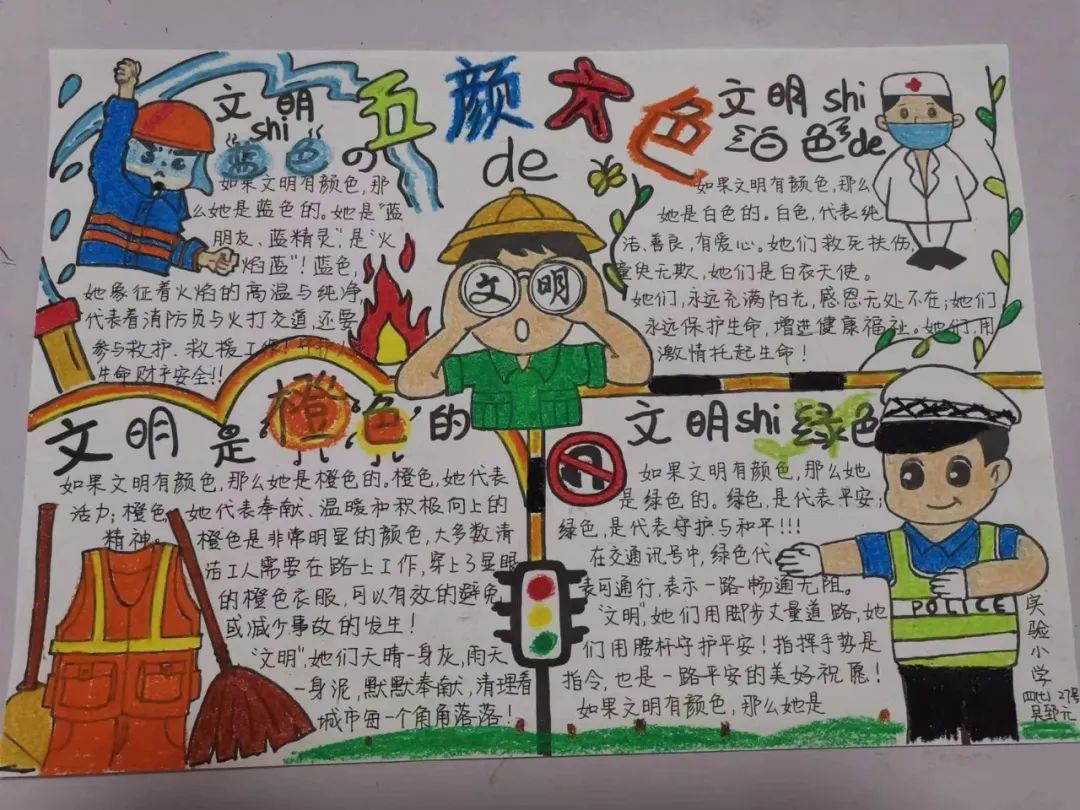 五颜六色
de
文明
shi
蓝色の
如果文明有颜色,那
么她是蓝色的。她是“蓝
朋友、蓝精灵”,是“火
焰蓝”!蓝色,
她象征着火焰的高温与纯净,
代表着消防员与火打交道,还要
参与救护、救援
生命财产安全!!
文明 shi
白色de
如果文明有颜色,那么
她是白色的。白色,代表纯
洁、善良,有爱心。她们救死扶伤,
童叟无欺,她们是白衣天使。
她们,永远充满阳光,感恩无处不在;她们
永远保护生命,增进健康福祉。她们,用
激情托起生命!
文明
文明是橙色的
如果文明有颜色,那么她是橙色的。橙色,她代表
活力;橙色,她代表奉献、温暖和积极向上的
精神。橙色是非常明显的颜色,大多数清
洁工人需要在路上工作,穿上了显眼
的橙色衣服,可以有效的避免
或减少事故的发生!
“文明”,她们天晴一身灰,雨天
一身泥,默默奉献,清理着
城市每一个角角落落!
文明shi绿色
如果文明有颜色,那么她
是绿色的。绿色,是代表平安;
绿色,是代表守护与和平!!!
在交通讯号中,绿色代
表可通行,表示一路畅通无阻。
“文明”,她们用脚步丈量道路,她
们用腰杆守护平安!指挥手势是
指令,也是一路平安的美好祝愿!
如果文明有颜色,那么她是
POLICE
实验小学